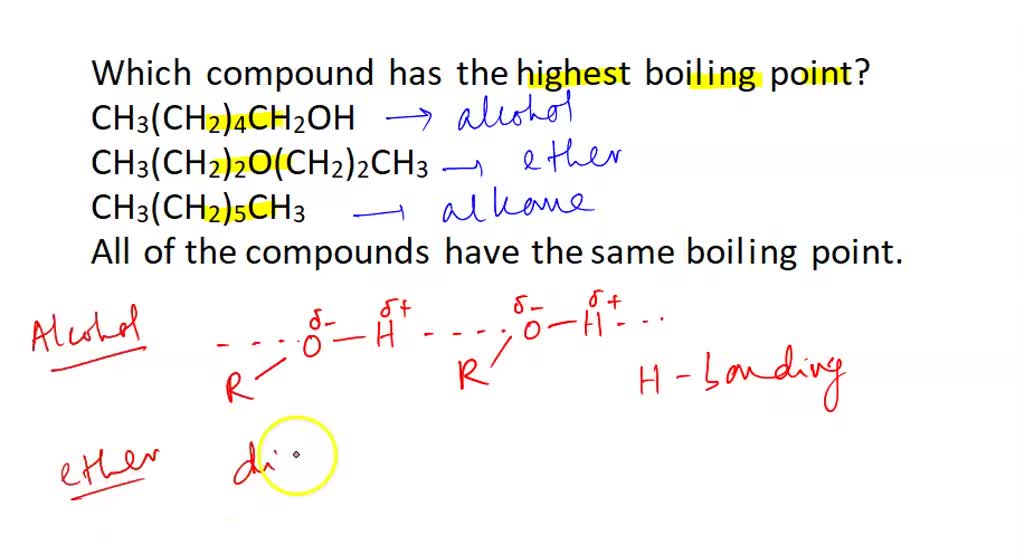 Which compound has the highest boiling point?
CH3(CH2)4CH2OH → alcohol
CH3(CH2)2O(CH2)2CH3 → ether
CH3(CH2)5CH3 → alkane
All of the compounds have the same boiling point.
δ- δ+ δ- δ+
Alcohol ---- O — H ---- O — H ---
R R H - bonding
ether di